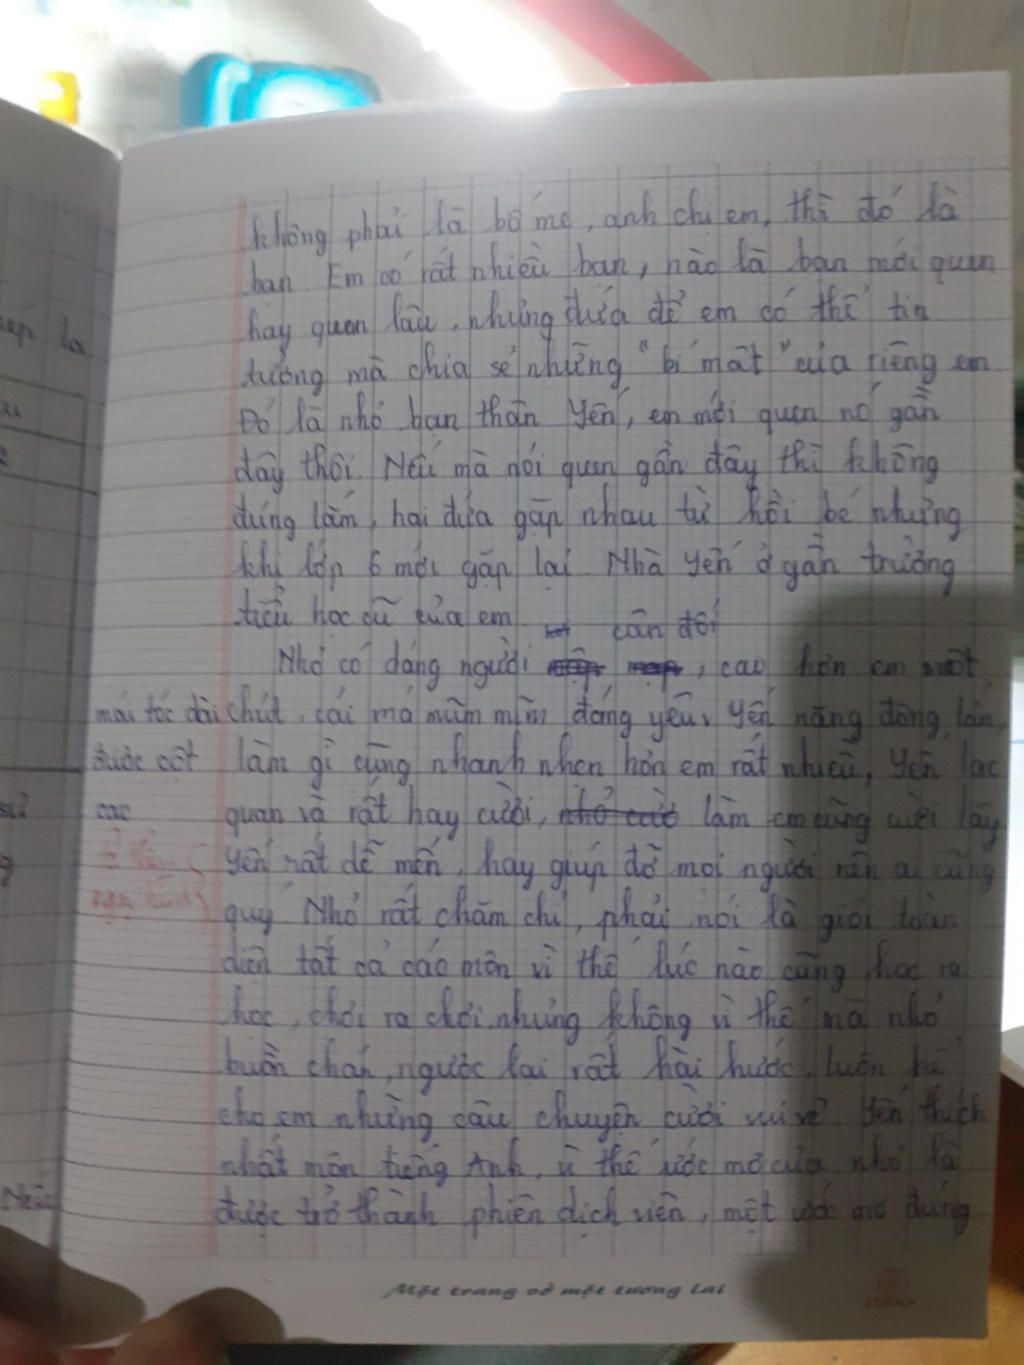 không phải là bố mẹ, anh chị em, thì đó là
bạn Em có rất nhiều bạn, nào là bạn mới quen
hay quen lâu, nhưng đứa để em có thể tin
tưởng mà chia sẻ những "bí mật" của riêng em
Đó là nhỏ bạn thân Yến, em mới quen nó gần
đây thôi. Nếu mà nói quen gần đây thì không
đúng lắm, hai đứa gặp nhau từ hồi bé nhưng
khi lớp 6 mới gặp lại Nhà Yến ở gần trường
tiểu học cũ của em
cân đối
Nhỏ có dáng người, cao hơn em một
mái tóc dài
chút, cái má mũm mĩm đáng yêu. Yến năng động lắm,
được cột
làm gì cũng nhanh nhẹn hơn em rất nhiều, Yến lạc
cao
quan và rất hay cười, nhỏ cười làm em cũng cười lây
Yến rất dễ mến, hay giúp đỡ mọi người nên ai cũng
quý Nhỏ rất chăm chỉ, phải nói là giỏi toàn
diện tất cả các môn vì thế lúc nào cũng học ra
học, chơi ra chơi nhưng không vì thế mà nhỏ
buồn chán, ngược lại rất hài hước, luôn kể
cho em những câu chuyện cười vui vẻ Yến thích
nhất môn tiếng Anh, vì thế ước mơ của nhỏ là
được trở thành phiên dịch viên, một ước mơ đúng
Một trang vở một tương lai